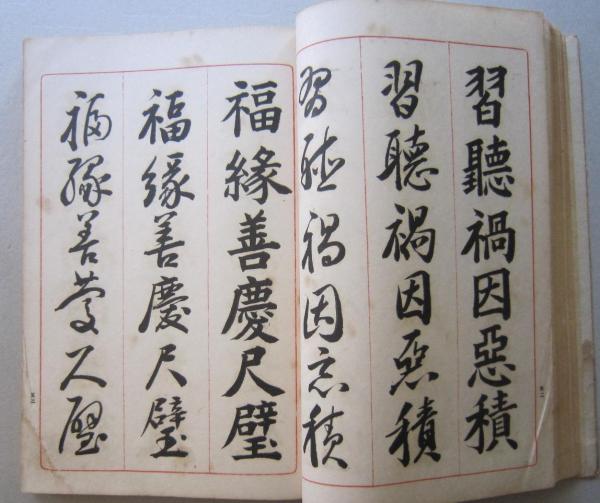 習聽禍因惡積
習聽禍因惡積
習聽禍因惡積
福緣善慶尺璧
福緣善慶尺璧
福緣善慶尺璧